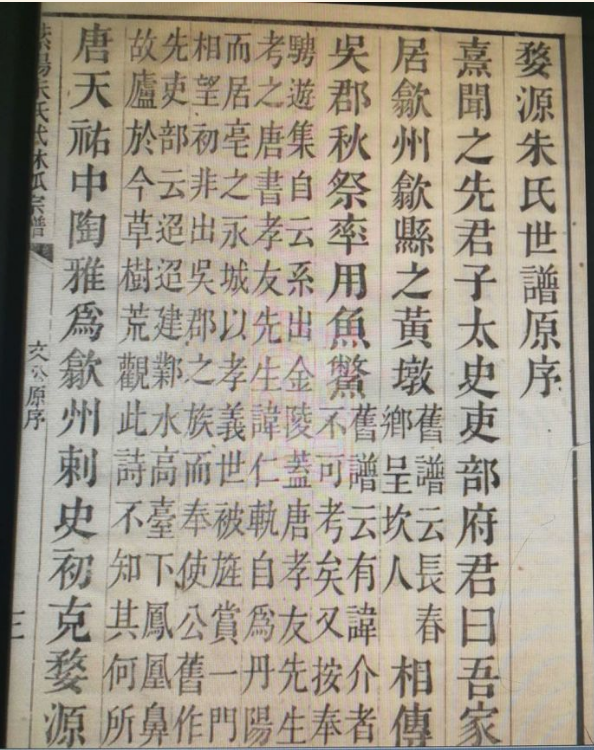 婺源朱氏世譜原序
熹聞之先君子太史吏部府君曰吾家
居歙州歙縣之黃墩
舊譜云長春
鄉呈坎人
相傳
吳郡秋祭率用魚鱉
舊譜云有諱介者
不可考矣又按奉
騁遊集自云系出金陵蓋唐孝友先生
考之唐書孝友先生諱仁軌自為丹陽
而居亳之永城以孝義世被旌賞一門
相望初非出吳郡之族而奉使公舊作
先吏部云迢迢建鄴水高臺下鳳凰鼻
故廬於今草樹荒觀此詩不知其何所
唐天祐中陶雅爲歙州刺史初克婺源
文公原序